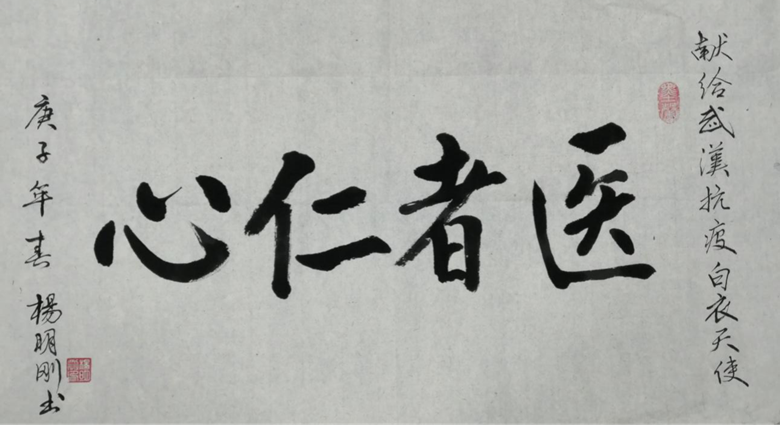 献给武漢抗疫白衣天使
医者仁心
庚子年春 楊明刚书